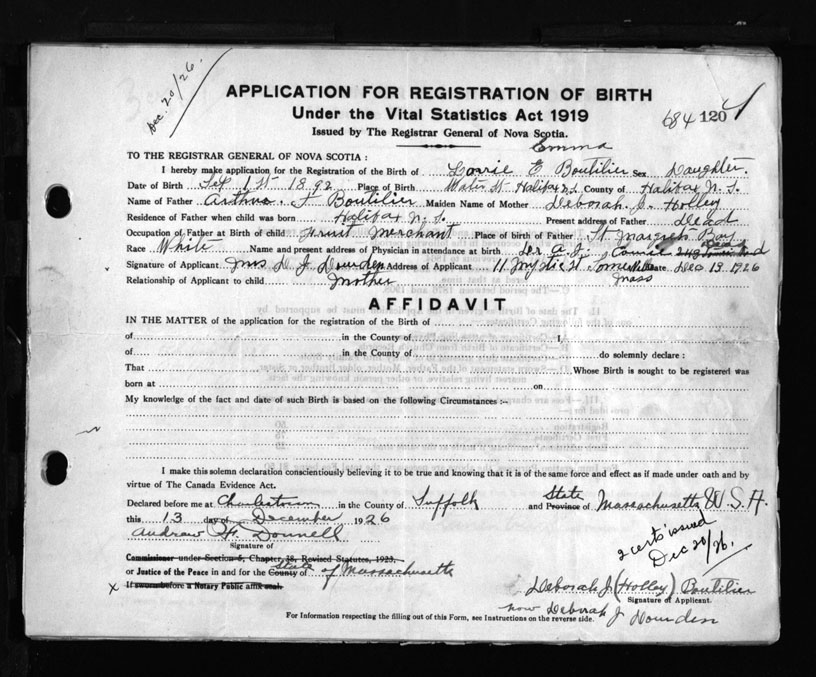 Dec. 20/26.
APPLICATION FOR REGISTRATION OF BIRTH
Under the Vital Statistics Act 1919
684 1204
Issued by The Registrar General of Nova Scotia.
Emma
TO THE REGISTRAR GENERAL OF NOVA SCOTIA :
I hereby make application for the Registration of the Birth of Lorrie E Boutilier Sex Daughter.
Date of Birth Sep 1st 1892 Place of Birth Water St Halifax N.S. County of Halifax N. S.
Name of Father Arthur F Boutilier Maiden Name of Mother Deborah J. Holley
Residence of Father when child was born Halifax N. S. Present address of Father dead
Occupation of Father at Birth of child Fruit Merchant Place of birth of Father St Margrets Bay
Race White Name and present address of Physician in attendance at birth A. J. Dead
Signature of Applicant Mrs D J Dowden Address of Applicant 11 Mystic St Somerville Date Dec 13 1926
Relationship of Applicant to child Mother Mass
AFFIDAVIT
IN THE MATTER of the application for the registration of the Birth of
of in the County of I,
of in the County of do solemnly declare :
That Whose Birth is sought to be registered was
born at on
My knowledge of the fact and date of such Birth is based on the following Circumstances :–
I make this solemn declaration conscientiously believing it to be true and knowing that it is of the same force and effect as if made under oath and by
virtue of The Canada Evidence Act.
State
Declared before me at Charlestown in the County of Suffolk and Province of Massachusetts U. S. A.
this 13 day of December 1926
Andrew H. Donnell
2 certs issued
Dec 20/26.
Signature of
Commissioner under Section 6, Chapter 38, Revised Statutes, 1923.
or Justice of the Peace in and for the County of State of Massachusetts
x If sworn before a Notary Public affix seal.
Deborah J. (Holley) Boutilier
Signature of Applicant.
now Deborah J Dowden
For Information respecting the filling out of this Form, see Instructions on the reverse side.